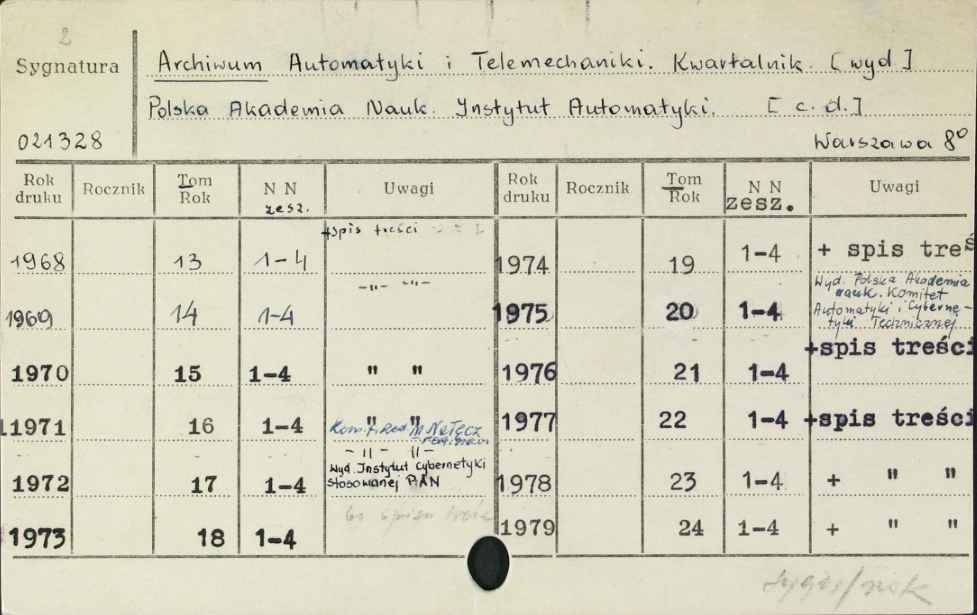 2
Sygnatura
Archiwum Automatyki i Telemechaniki. Kwartalnik. [wyd]
Polska Akademia Nauk. Instytut Automatyki. [c. d.]
021328
Warszawa 8°
Rok druku Rocznik Tom Rok N N zesz. Uwagi Rok druku Rocznik Tom Rok N N zesz. Uwagi
1968 13 1-4 +spis treści
1969 14 1-4 -"- -"-
1970 15 1-4 " "
11971 16 1-4 " "
Kom. Red. M. Nałęcz
-"- -"-
1972 17 1-4 Wyd. Instytut Cybernetyki
Stosowanej PAN
1973 18 1-4
1974 19 1-4 + spis treś
Wyd. Polska Akademia
nauk. Komitet
1975 20 1-4 Automatyki i Cyberne-
tyki Technicznej
+spis treści
1976 21 1-4
1977 22 1-4 +spis treści
1978 23 1-4 + " "
1979 24 1-4 + " "